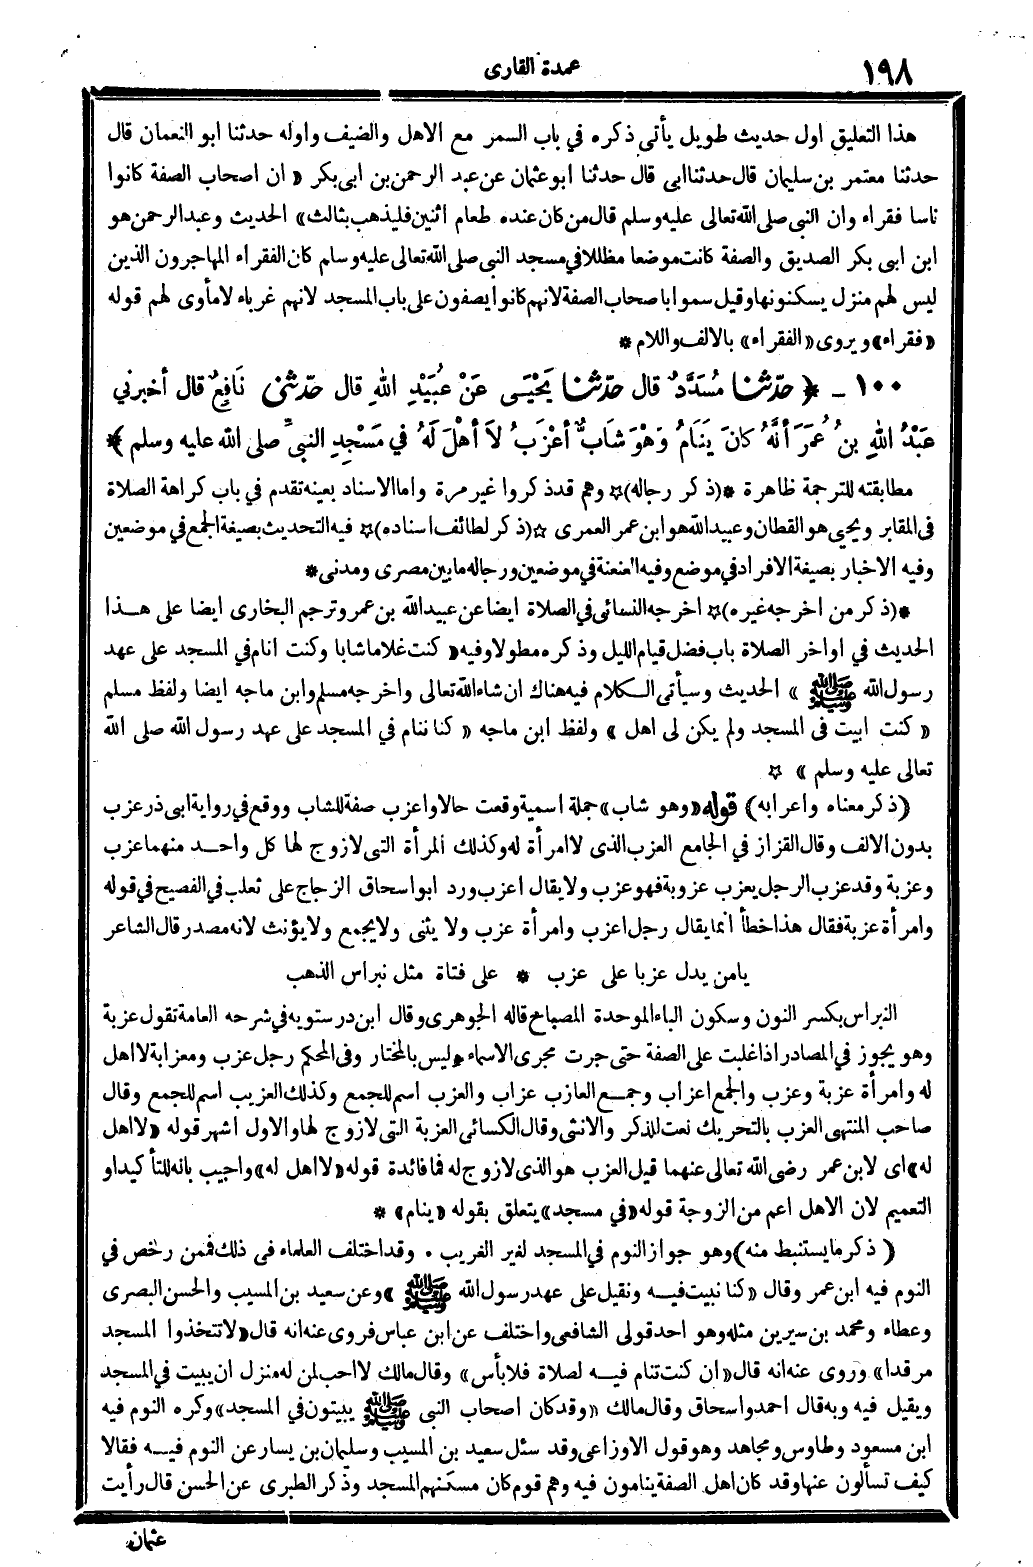 ١٩٨
عمدة القارى
هذا التعليق اول حديث طويل يأتى ذكره في باب السمر مع الاهل والضيف واوله حدثنا ابو النعمان قال
حدثنا معتمر بن سليمان قال حدثنا ابى قال حدثنا ابو عثمان عن عبد الرحمن بن ابى بكر « ان اصحاب الصفة كانوا
ناسا فقراء وان النبى صلى الله تعالى عليه وسلم قال من كان عنده طعام اثنين فليذهب بثالث » الحديث وعبد الرحمن هو
ابن ابى بكر الصديق والصفة كانت موضعا مظللا في مسجد النبى صلى الله تعالى عليه وسلم كان الفقراء المهاجرون الذين
ليس لهم منزل يسكنونها وقيل سموا باصحاب الصفة لانهم كانوا يصفون على باب المسجد لانهم غرباء لا مأوى لهم قوله
«فقراء» ويروى «الفقراء» بالالف واللام *
١٠٠ ـ ﴿ حدّثنا مُسَدَّدٌ قال حدّثنا يَحْيَى عَنْ عُبَيْدِ اللهِ قال حدّثنى نَافِعٌ قال أخبرني
عَبْدُ اللهِ بنُ عُمَرَ أنَّهُ كانَ يَنَامُ وَهْوَ شَابٌّ أعْزَبُ لاَ أهْلَ لَهُ في مَسْجِدِ النبىِّ صلى الله عليه وسلم ﴾
مطابقته للترجمة ظاهرة *(ذكر رجاله)☆ وهم قد ذكروا غير مرة واما الاسناد بعينه تقدم في باب كراهة الصلاة
فى المقابر ويحيى هو القطان وعبيد الله هو ابن عمر العمرى ☆(ذكر لطائف اسناده)☆ فيه التحديث بصيغة الجمع في موضعين
وفيه الاخبار بصيغة الافراد في موضع وفيه العنعنة في موضعين ورجاله ما بين مصرى ومدنى *
*(ذكر من اخرجه غيره)☆ اخرجه النسائى في الصلاة ايضا عن عبيد الله بن عمر وترجم البخارى ايضا على هذا
الحديث في اواخر الصلاة باب فضل قيام الليل وذكره مطولا وفيه « كنت غلاما شابا وكنت انام في المسجد على عهد
رسول الله ﷺ » الحديث وسيأتى الكلام فيه هناك ان شاء الله تعالى واخرجه مسلم وابن ماجه ايضا ولفظ مسلم
« كنت ابيت فى المسجد ولم يكن لى اهل » ولفظ ابن ماجه « كنا ننام في المسجد على عهد رسول الله صلى الله
تعالى عليه وسلم » ☆
(ذكر معناه واعرابه) قوله «وهو شاب» جملة اسمية وقعت حالا واعزب صفة للشاب ووقع في رواية ابى ذر عزب
بدون الالف وقال القزاز في الجامع العزب الذى لا امرأة له وكذلك المرأة التى لا زوج لها كل واحد منهما عزب
وعزبة وقد عزب الرجل يعزب عزوبة فهو عزب ولا يقال اعزب ورد ابو اسحاق الزجاج على ثعلب في الفصيح في قوله
وامرأة عزبة فقال هذا خطأ انما يقال رجل اعزب وامرأة عزب ولا يثنى ولا يجمع ولا يؤنث لانه مصدر قال الشاعر
يا من يدل عزبا على عزب * على فتاة مثل نبراس الذهب
النبراس بكسر النون وسكون الباء الموحدة المصباح قاله الجوهرى وقال ابن درستويه في شرحه العامة تقول عزبة
وهو يجوز في المصادر اذا غلبت على الصفة حتى جرت مجرى الاسماء وليس بالمختار وفى المحكم رجل عزب ومعزابة لا اهل
له وامرأة عزبة وعزب والجمع اعزاب وجمع العازب عزاب والعزب اسم للجمع وكذلك العزيب اسم للجمع وقال
صاحب المنتهى العزب بالتحريك نعت للذكر والانثى وقال الكسائى العزبة التى لا زوج لها والاول اشهر قوله «لا اهل
له» اى لابن عمر رضى الله تعالى عنهما قيل العزب هو الذى لا زوج له فما فائدة قوله «لا اهل له» واجيب بانه للتأكيد او
التعميم لان الاهل اعم من الزوجة قوله «في مسجد» يتعلق بقوله «ينام» *
( ذكر ما يستنبط منه) وهو جواز النوم في المسجد لغير الغريب . وقد اختلف العلماء فى ذلك فمن رخص في
النوم فيه ابن عمر وقال «كنا نبيت فيه ونقيل على عهد رسول الله ﷺ » وعن سعيد بن المسيب والحسن البصرى
وعطاء ومحمد بن سيرين مثله وهو احد قولى الشافعى واختلف عن ابن عباس فروى عنه انه قال «لا تتخذوا المسجد
مرقدا» وروى عنه انه قال «ان كنت تنام فيه لصلاة فلا بأس » وقال مالك لا احب لمن له منزل ان يبيت في المسجد
ويقيل فيه وبه قال احمد واسحاق وقال مالك «وقد كان اصحاب النبى ﷺ يبيتون في المسجد» وكره النوم فيه
ابن مسعود وطاوس ومجاهد وهو قول الاوزاعى وقد سئل سعيد بن المسيب وسليمان بن يسار عن النوم فيه فقالا
كيف تسألون عنها وقد كان اهل الصفة ينامون فيه وهم قوم كان مسكنهم المسجد وذكر الطبرى عن الحسن قال رأيت
عثمان